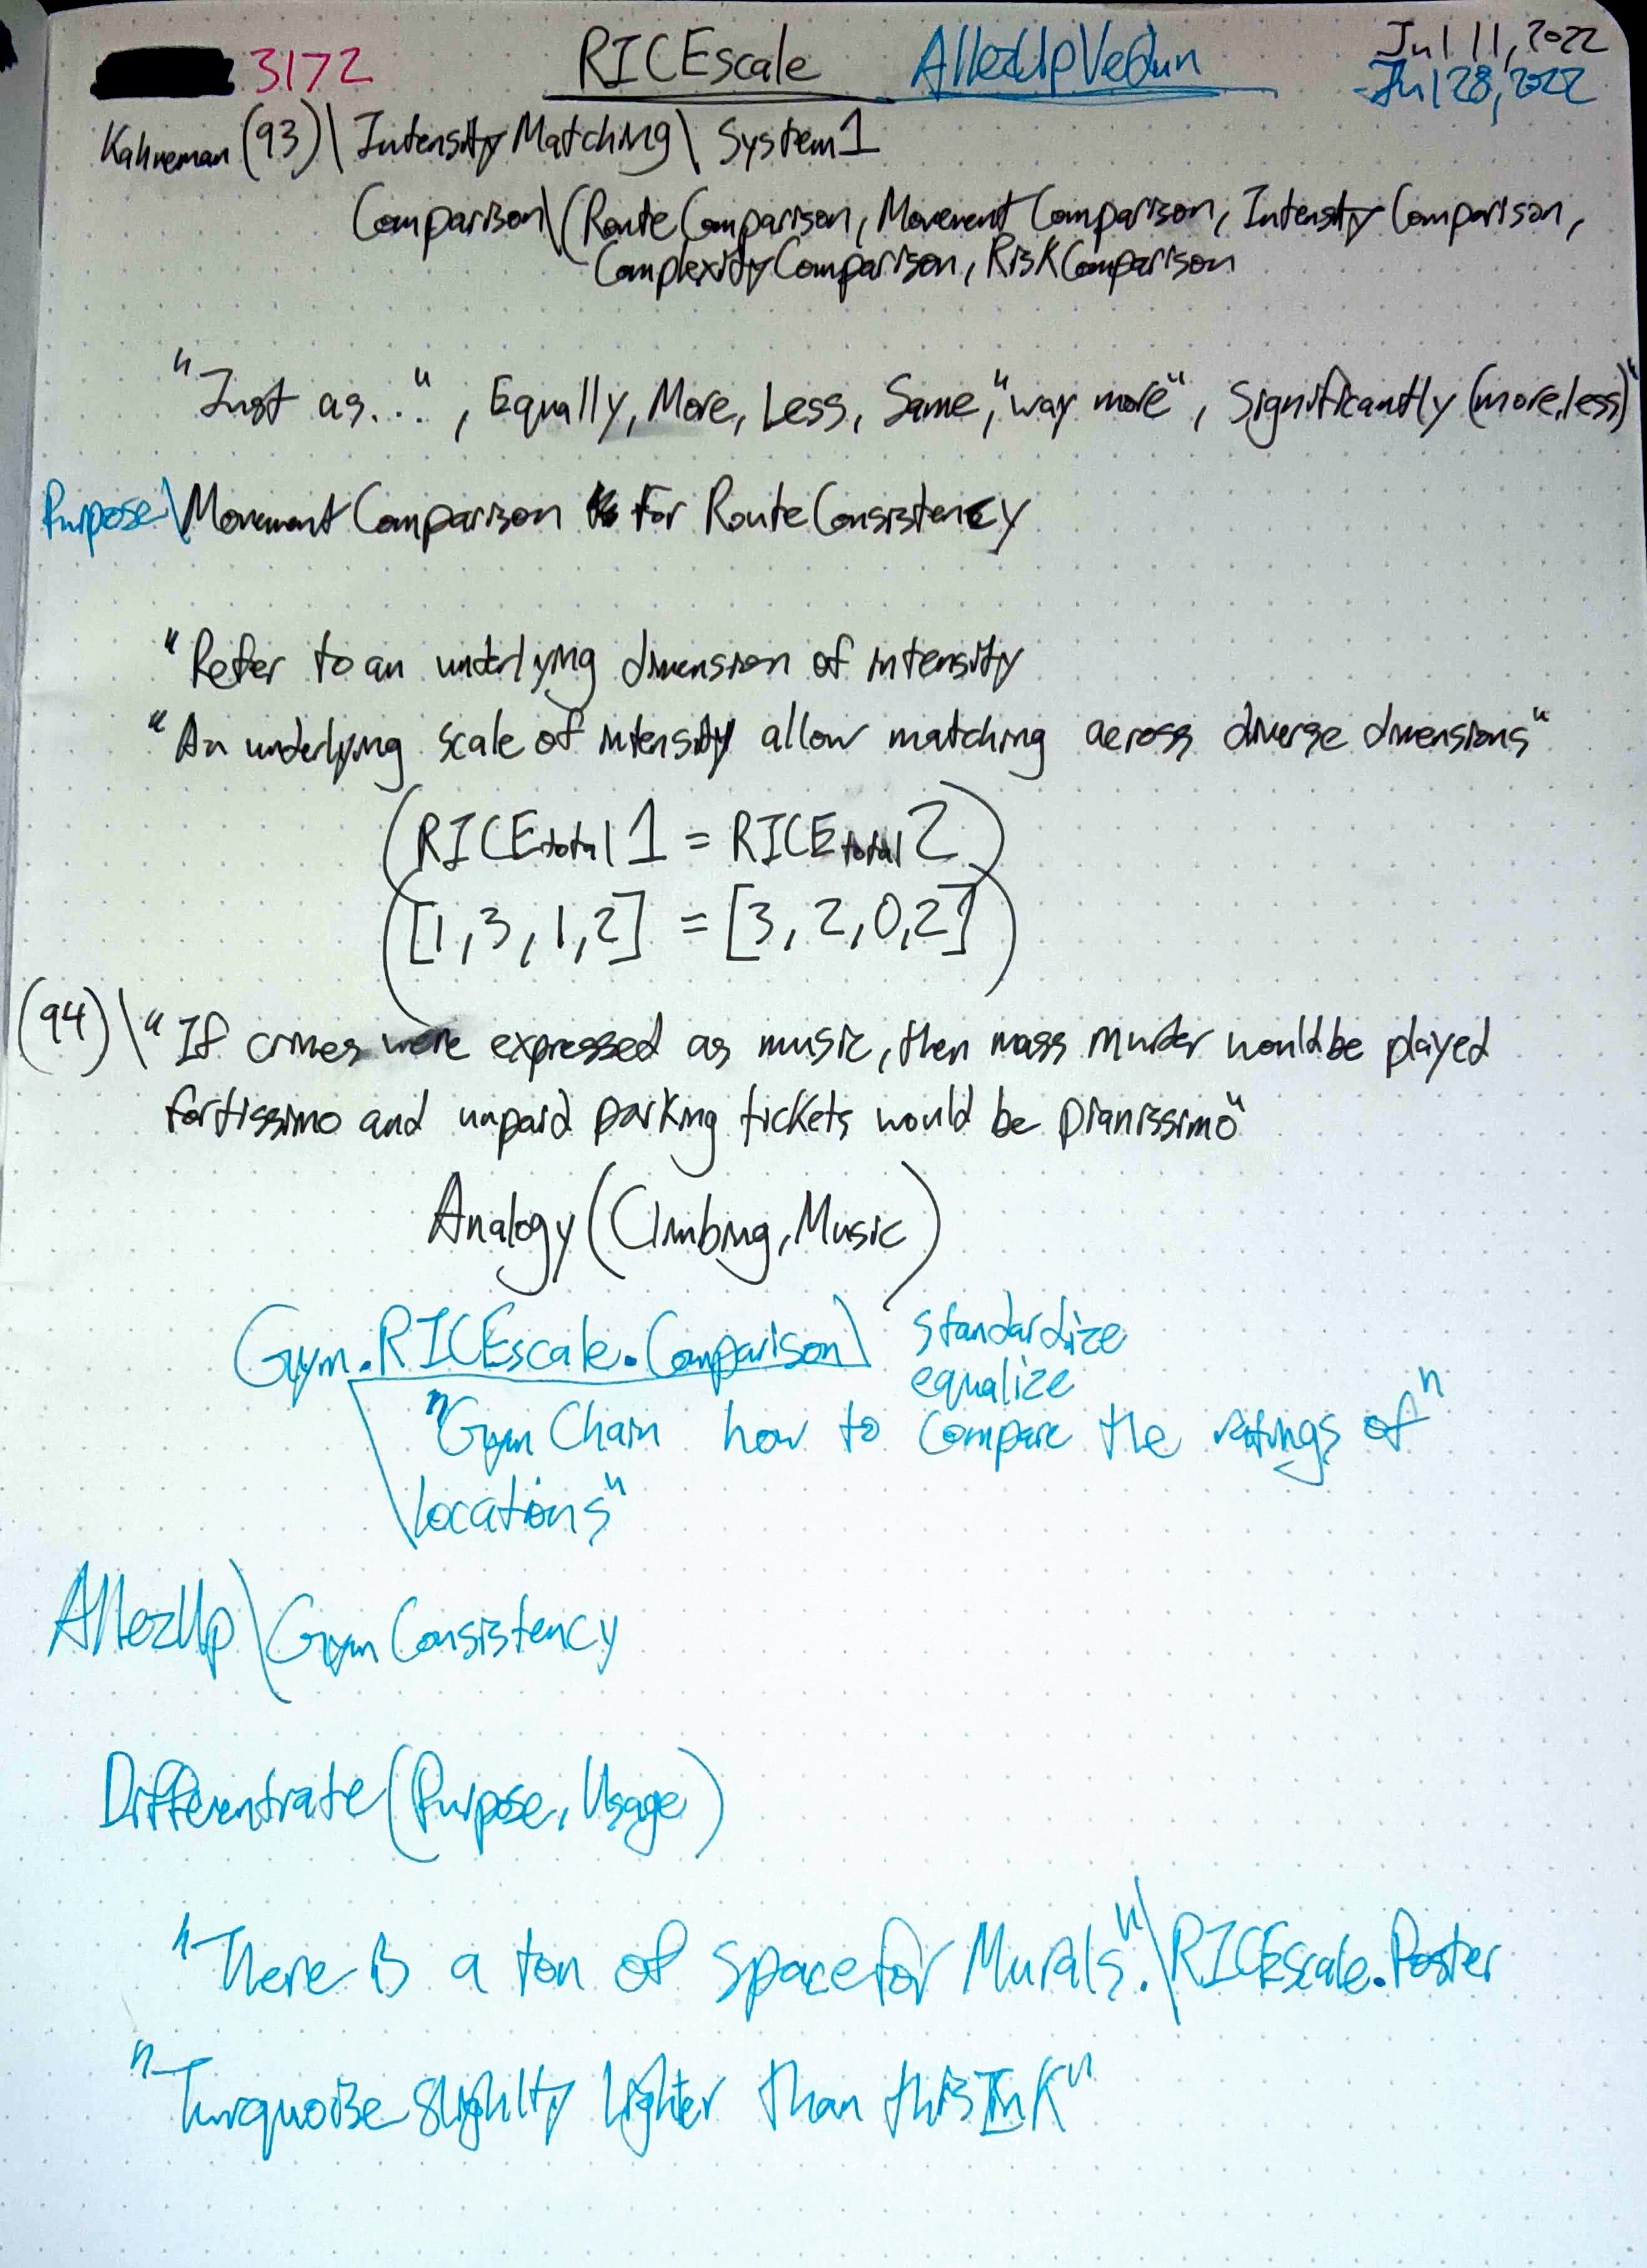 3172 RICEscale AllezUpVerdun Jul 11, 2022
Jul 28, 2022
Kahneman (93)\Intensity Matching\System1
Comparison\(Route Comparison, Movement Comparison, Intensity Comparison,
Complexity Comparison, Risk Comparison
"Just as...", Equally, More, Less, Same, "way more", Significantly (more, less)"
Purpose\Movement Comparison for Route Consistency
"Refer to an underlying dimension of intensity
"An underlying scale of intensity allow matching across diverse dimensions"
(RICEtotal1 = RICEtotal2)
([1,3,1,2] = [3,2,0,2])
(94)\"If crimes were expressed as music, then mass murder would be played
fortissimo and unpaid parking tickets would be pianissimo"
Analogy(Climbing, Music)
Gym.RICEscale.Comparison\ standardize
equalize
"Gym Chain how to compare the ratings of"
\locations"
AllezUp\Gym Consistency
Differentiate(Purpose, Usage)
"There is a ton of space for Murals."\RICEscale.Poster
"Turquoise slighlty lighter than this InK"